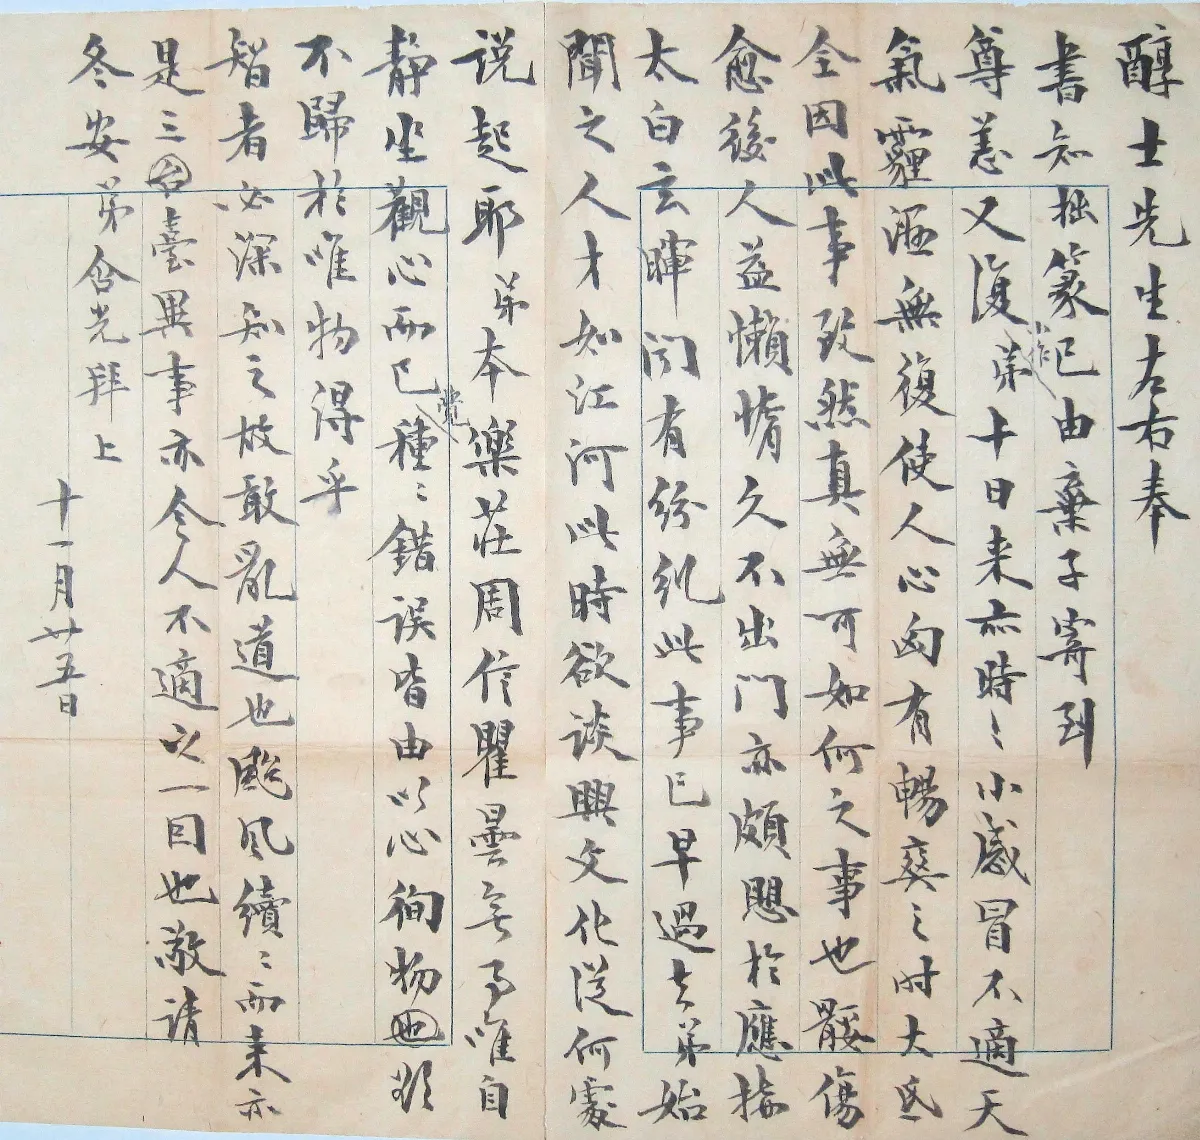 醇士先生左右奉
書知拙篆已由棄子寄到小作
尊恙又復弟十日来亦時〻小感冒不適天
氣霾溼無復使人心匈有暢爽之时大氐
全因此事致然真無可如何之事也骽傷
愈後人益懶惰久不出門亦頗憩於應接
太白玄暉间有纷纠此事已早過去弟始
聞之人才如江河此時欲谈興文化從何處
说起耶弟本樂莊周信瞿曇無事唯自
静坐觀心而已覺種〻錯误皆由以心徇物也欲
不歸於唯物得乎
智者必深知之故敢亂道也颱风續〻而来亦
是三台臺異事亦令人不適之一因也敬请
冬安弟含光拜上
十一月廿五日